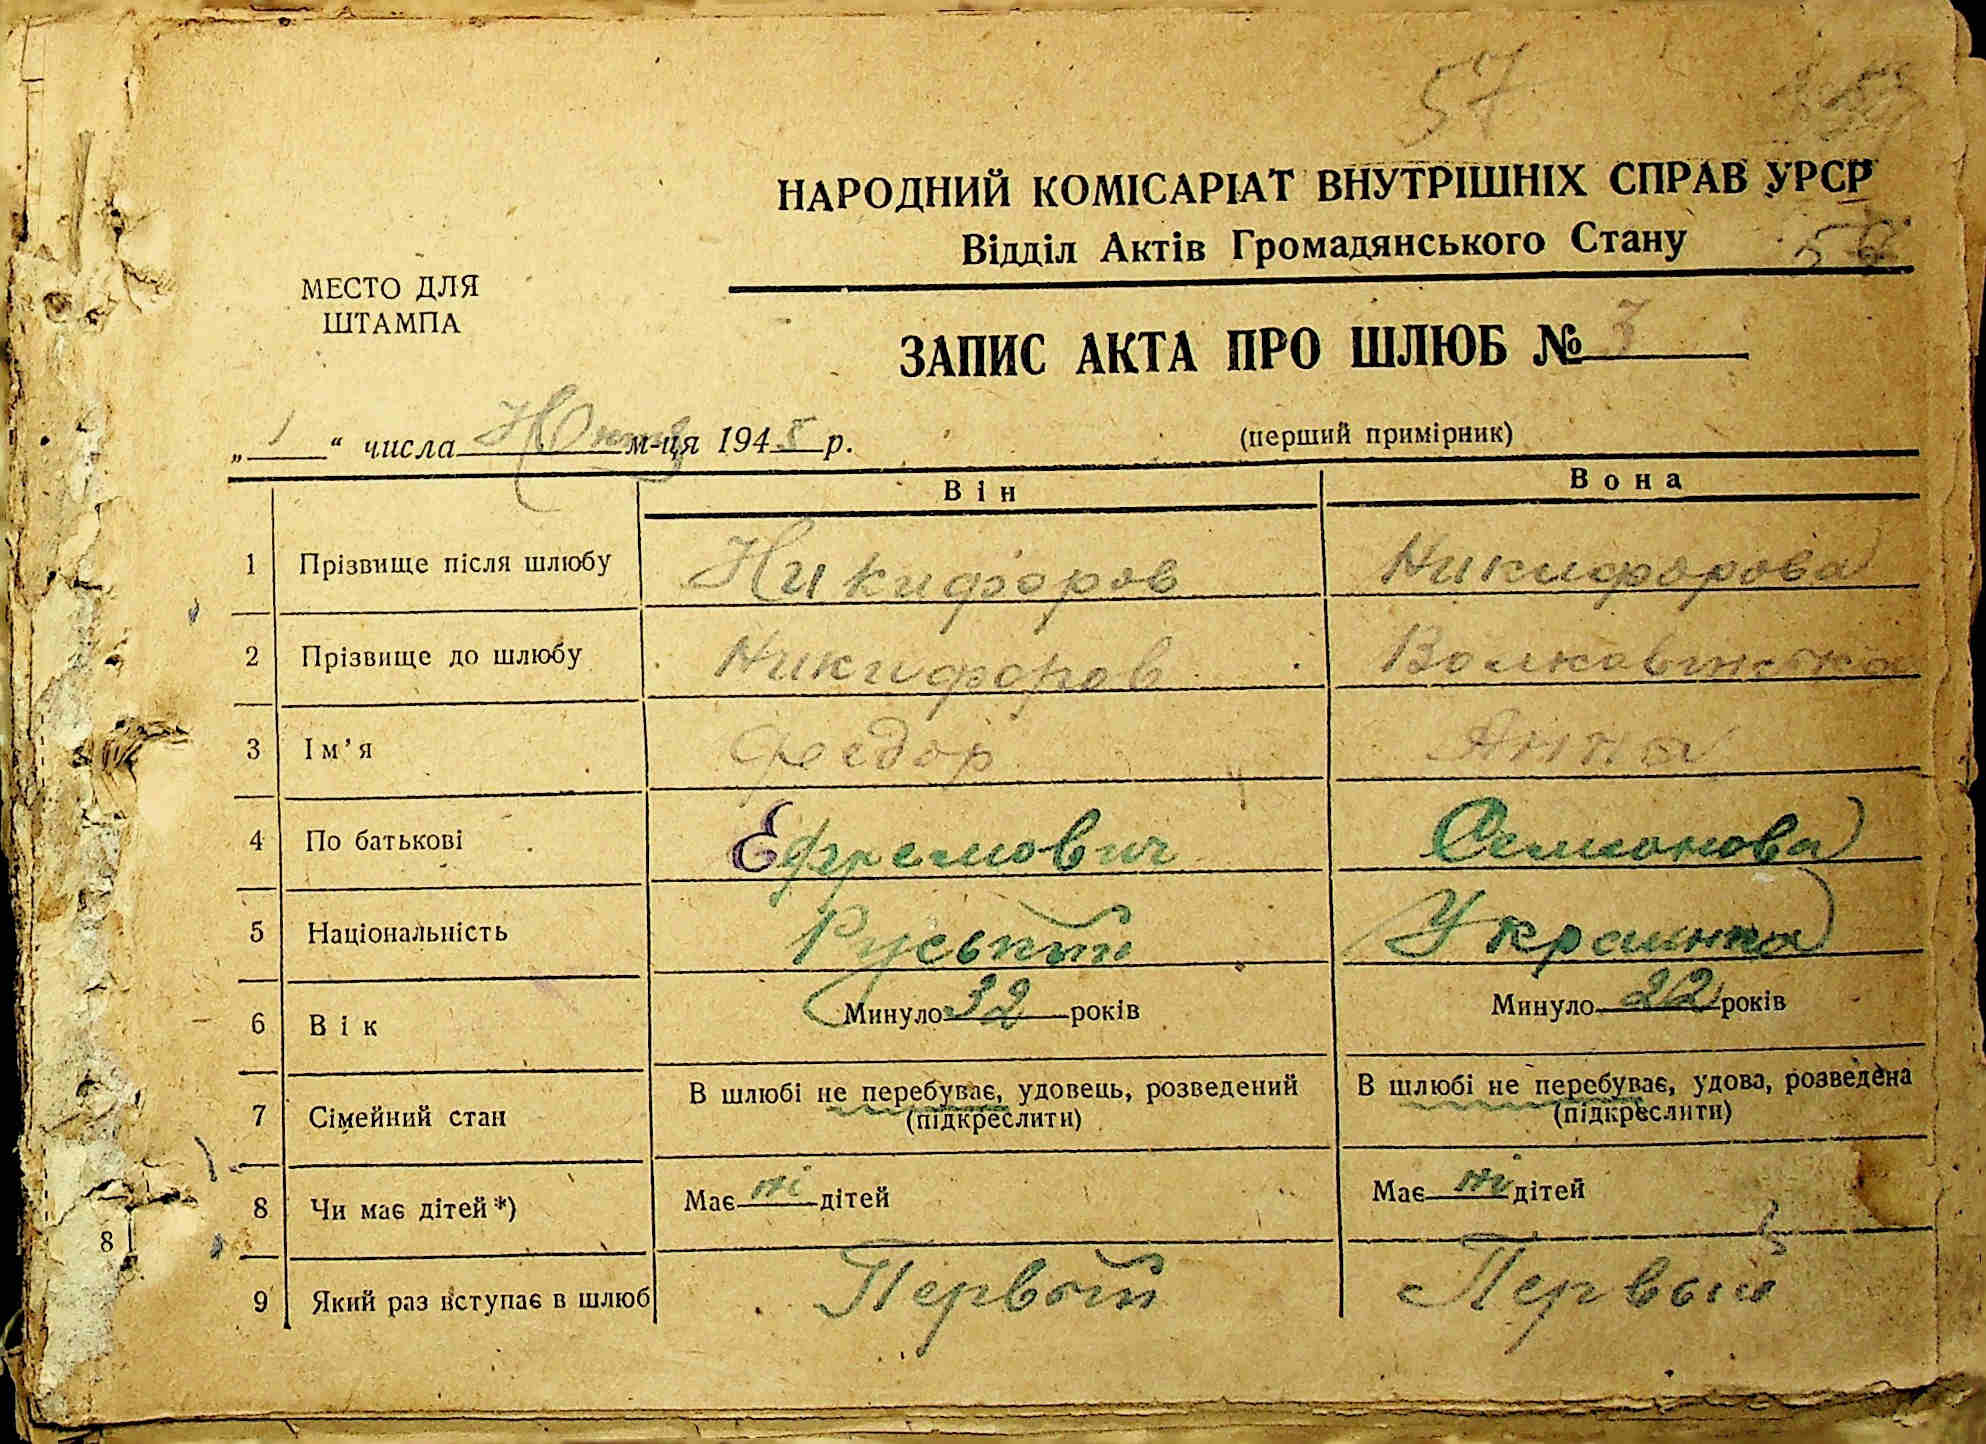 57
НАРОДНИЙ КОМІСАРІАТ ВНУТРІШНІХ СПРАВ УРСР
Відділ Актів Громадянського Стану
МЕСТО ДЛЯ
ШТАМПА
ЗАПИС АКТА ПРО ШЛЮБ № 7
„ 1 “ числа м-ця 1945 р.
(перший примірник)
Він Вона
1 Прізвище після шлюбу Никифоров Никифорова
2 Прізвище до шлюбу Никифоров
3 Ім’я Федор Анна
4 По батькові Ефремович Семионова
5 Національність Руський Украинка
6 Вік Минуло 32 років Минуло 22 років
7 Сімейний стан В шлюбі не перебуває, удовець, розведений В шлюбі не перебуває, удова, розведена
(підкреслити) (підкреслити)
8 Чи має дітей*) Має ні дітей Має ні дітей
8
9 Який раз вступає в шлюб Первый Первый